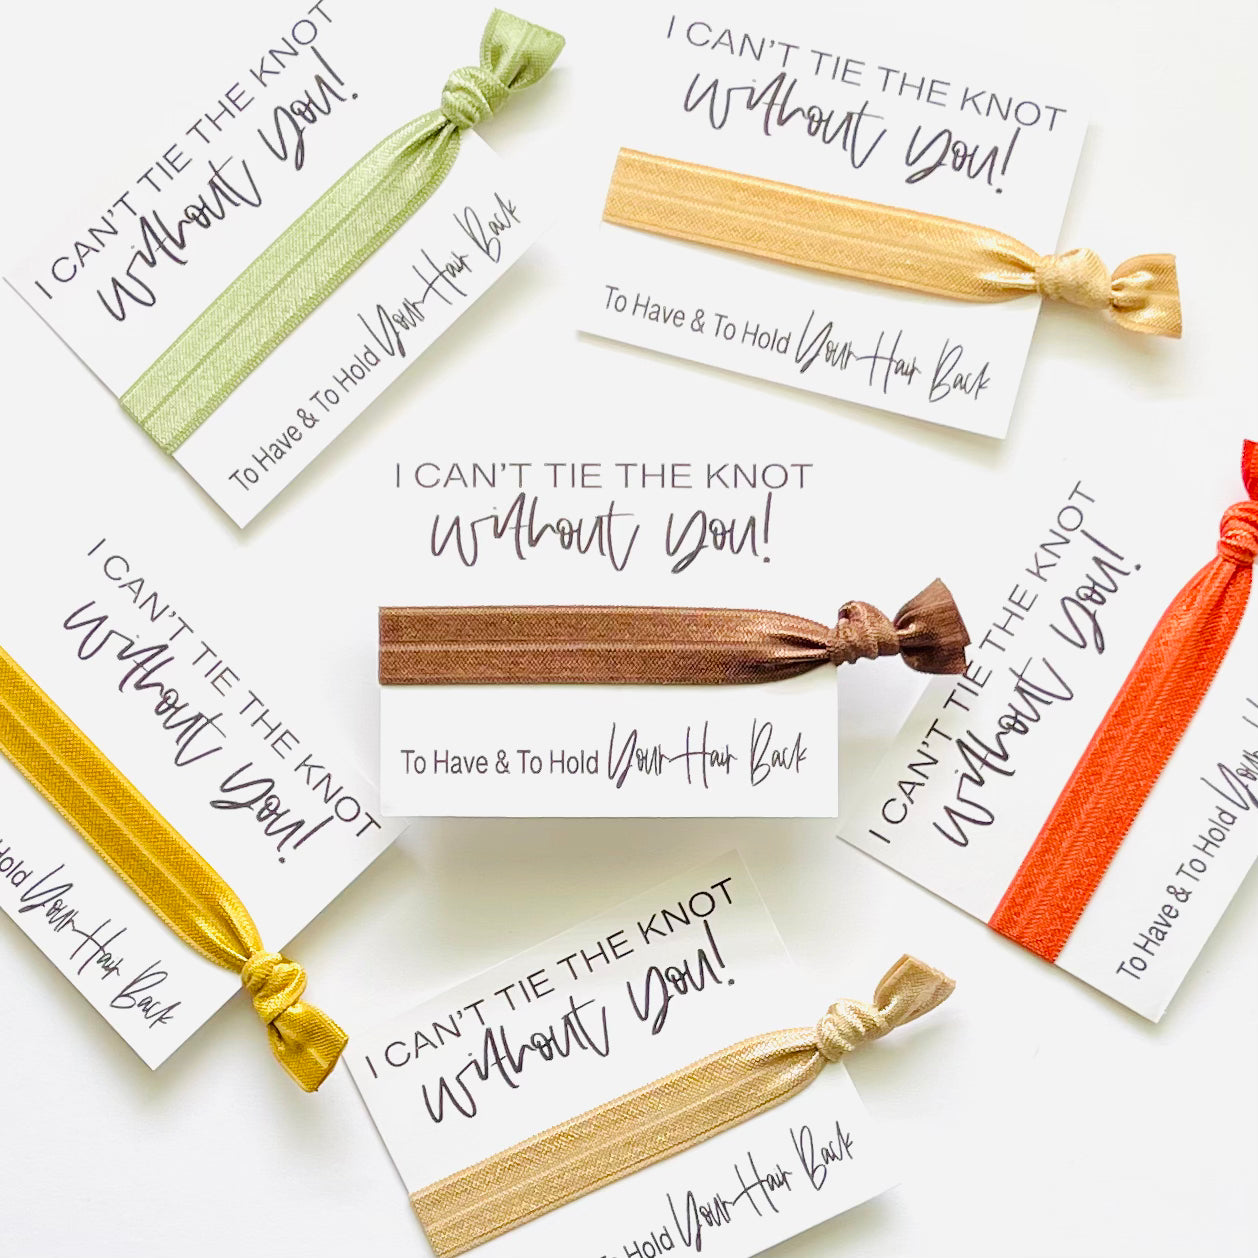 I CAN'T TIE THE KNOT
without you!
To Have & To Hold Your Hair Back
I CAN'T TIE THE KNOT
without you!
To Have & To Hold Your Hair Back
I CAN'T TIE THE KNOT
without you!
To Have & To Hold Your Hair Back
I CAN'T TIE THE KNOT
without you!
Hold Your Hair Back
I CAN'T TIE THE KNOT
without you!
To Have & To Hold Your
I CAN'T TIE THE KNOT
without you!
To Hold Your Hair Back